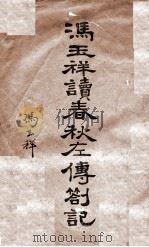 馮玉祥讀春秋左傳劄記
馮玉祥
mtoou.info